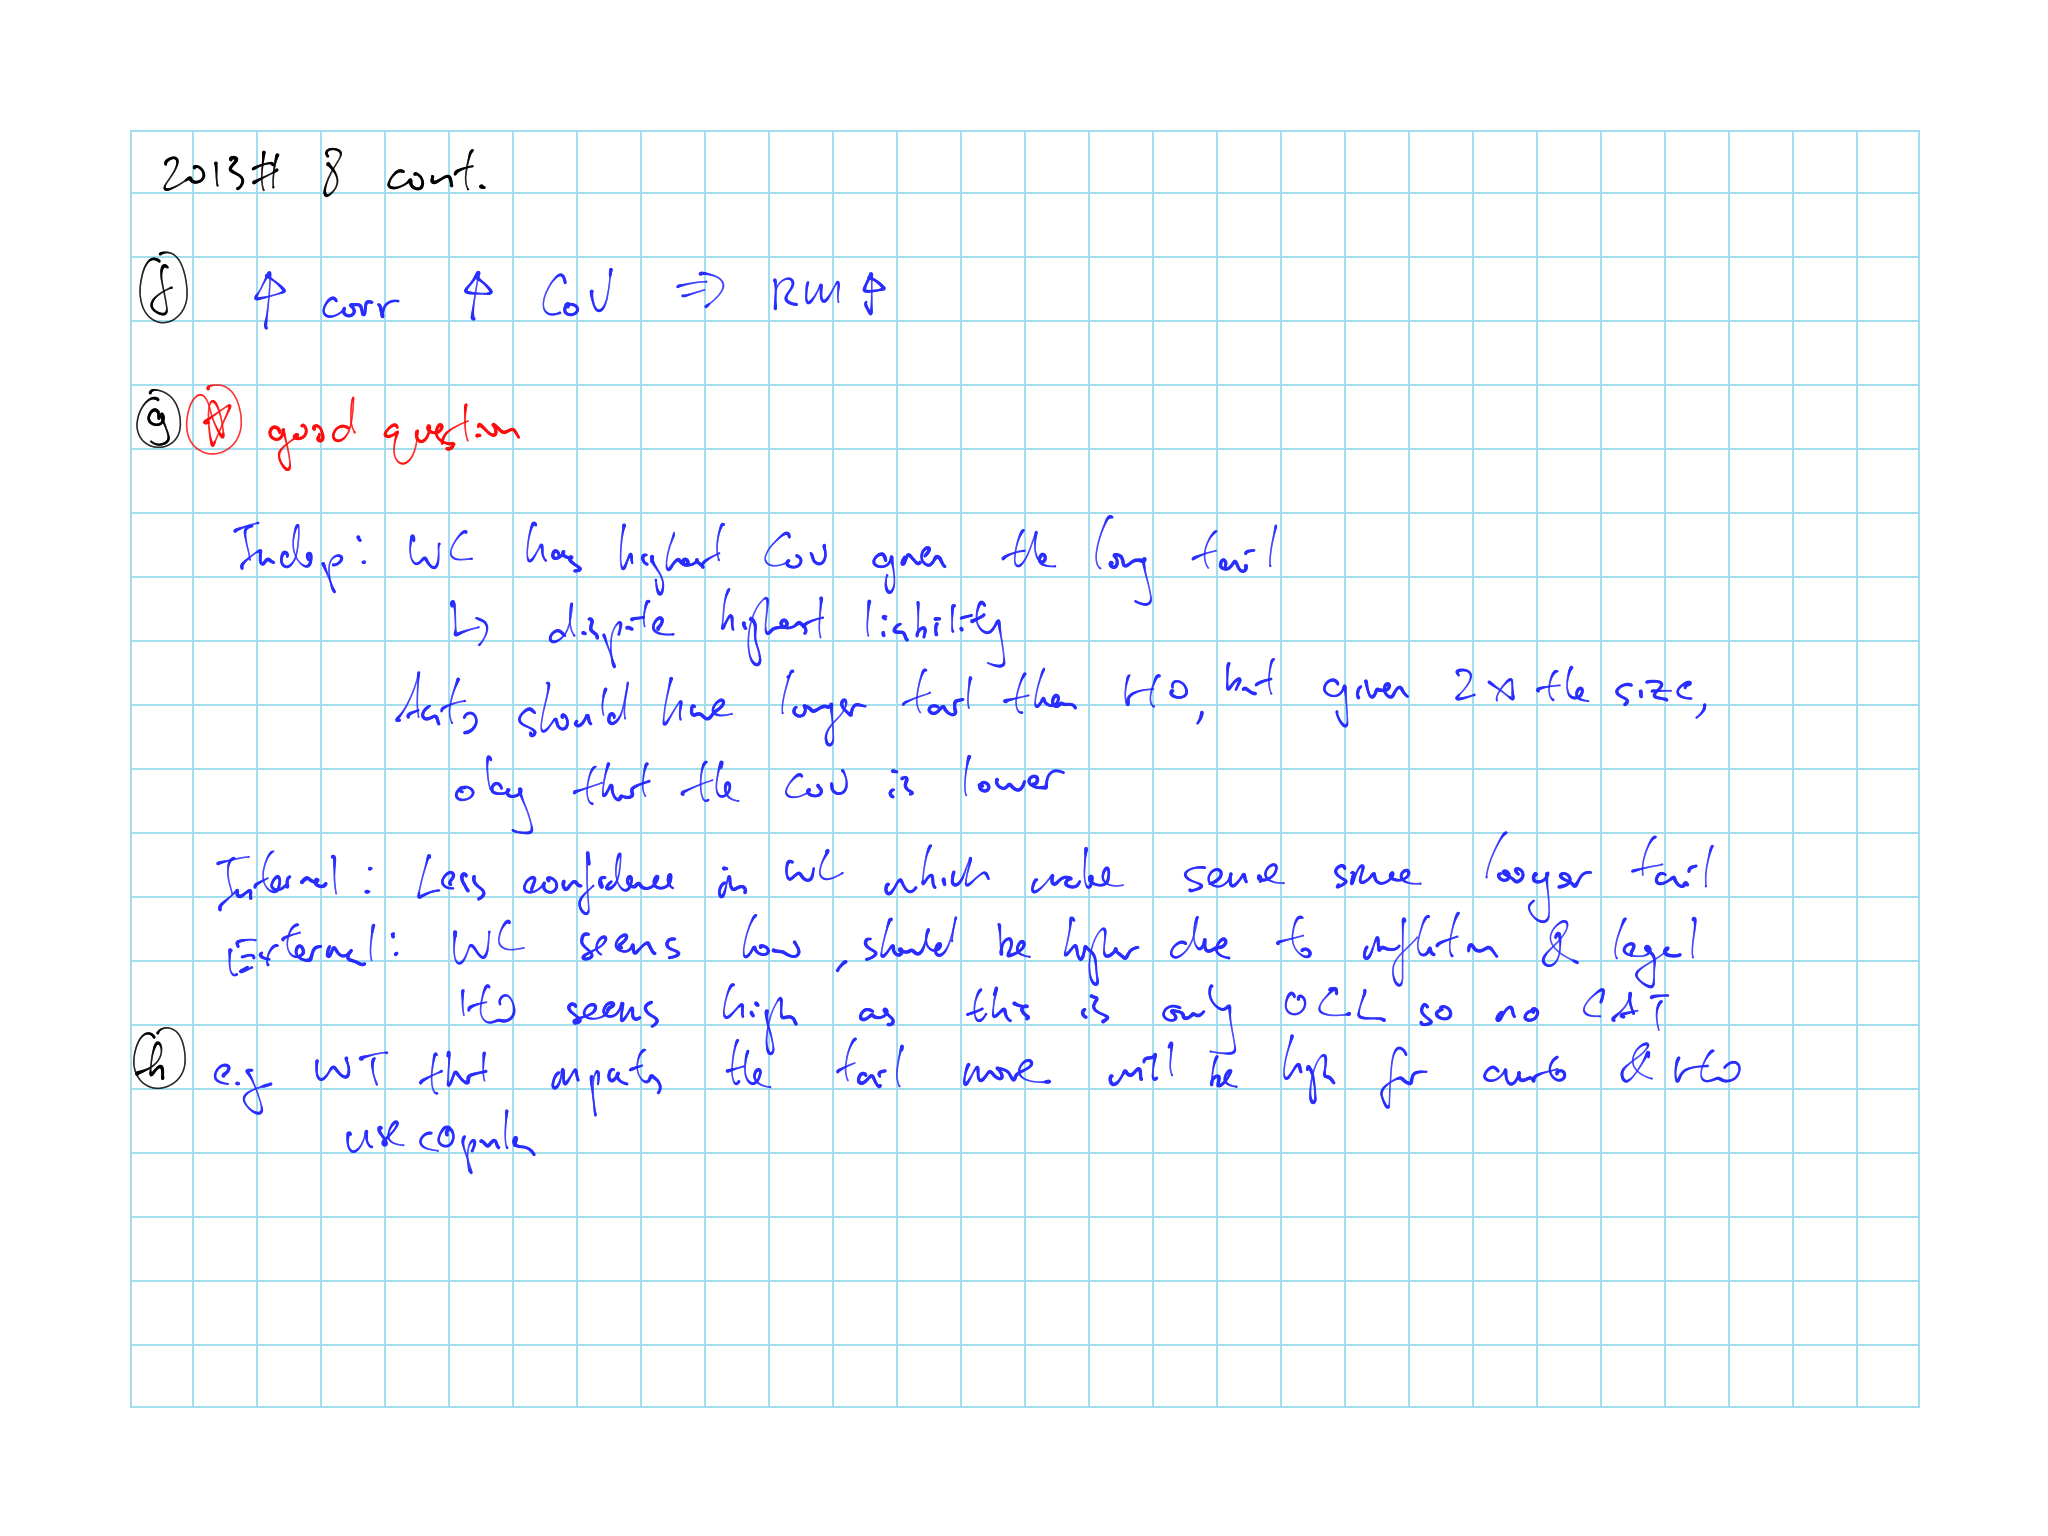 2013# 8 cont.
f ↑ corr ↑ CoV ⇒ RM ↑
g ☆ good question
Indep: WC has highest CoV given the long tail
↳ dispite highest liability
Auto should have longer tail then HO, but given 2x the size,
okay that the CoV is lower
Internal: Less confidence in WC which make sense since longer tail
External: WC seems low, should be higher due to inflation & legal
HO seems high as this is only OCL so no CAT
h e.g WT that impacts the tail more will be high for auto & HO
use copula